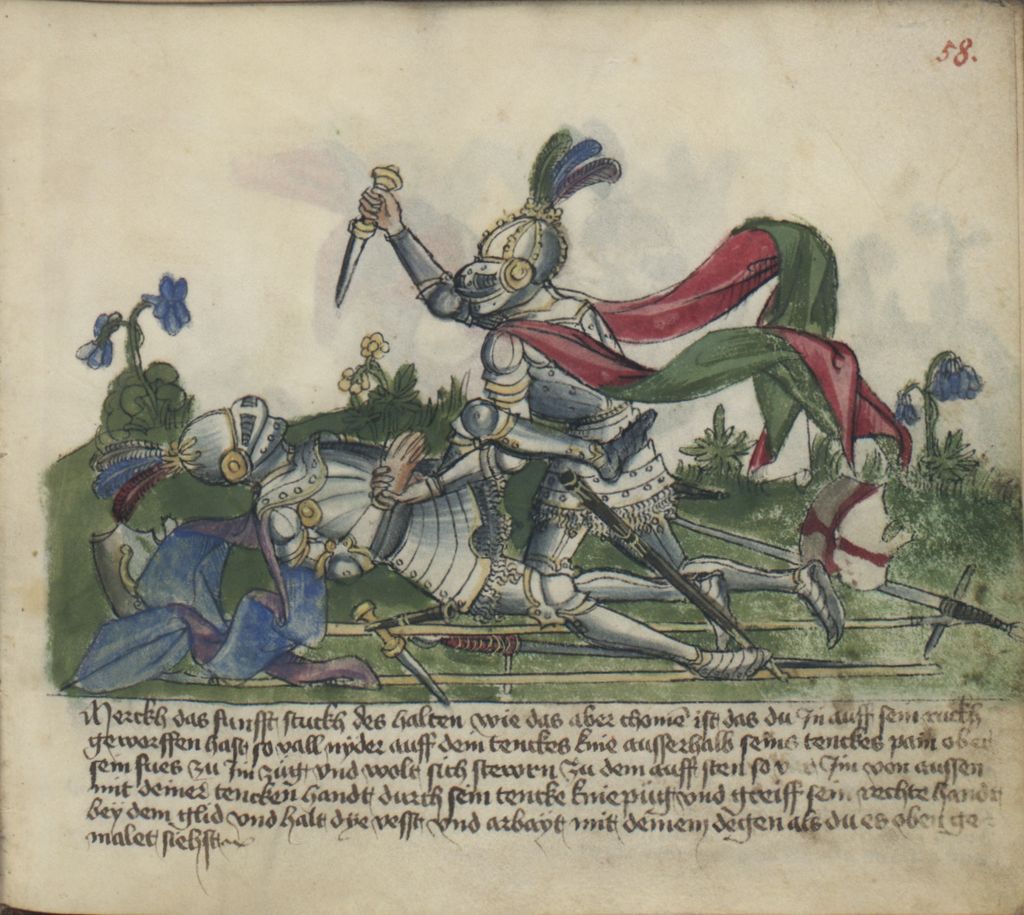 58.
Merckh das funfft stuckh des halten wie das aber chome ist das du In auff sein ruckh
geworffen hast so vall nyder auff dein tenckes knie ausserhalb seins tenckes pain ober
sein fues zu Im zug vnd wolt sich stewrn zu dem auff sten so Im von aussen
mit deiner tencken handt durch sein tencke kniepug vnd greiff sein rechte handt
bey dem glid vnd halt dye vesst vnd arbayt mit deinem degen als du es oben ge
malet siehst